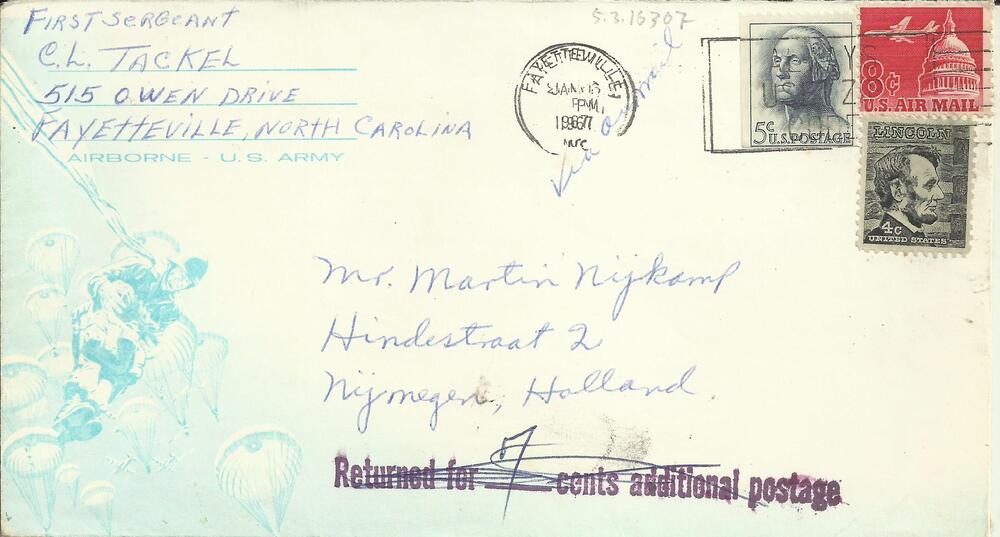 First Sergeant
C.L. Tackel
515 Owen Drive
Fayetteville, North Carolina
AIRBORNE - U.S. ARMY
5.3.16307
FAYETTEVILLE
JAN
PM
1967
N.C.
via air mail
5c U.S. POSTAGE
8c
U.S. AIR MAIL
LINCOLN
4c
UNITED STATES
Mr. Martin Nijkamp
Hindestraat 2
Nijmegen, Holland
Returned for cents additional postage